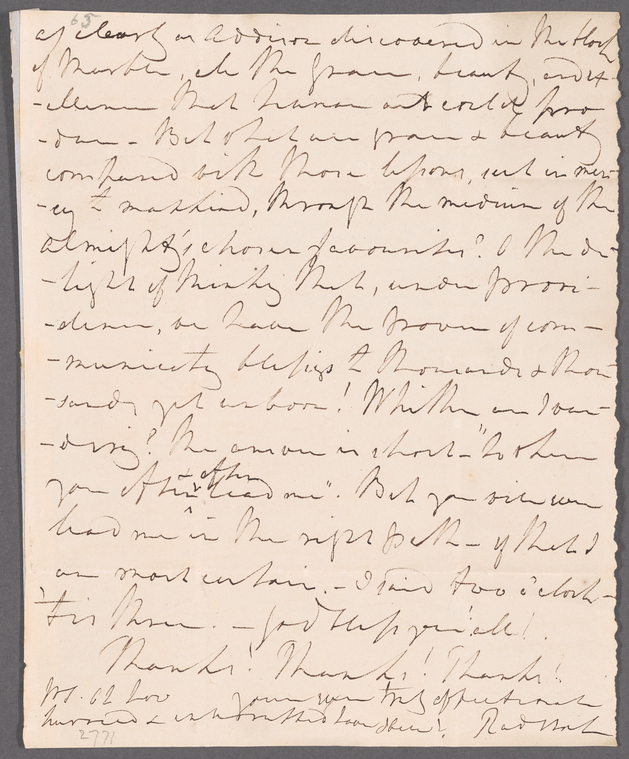 65
as clearly as Addison discovered in the block
of Marble, all the grace, beauty, and ex-
-cellence that human art could pro
-duce - But what are grace & beauty
compared with those lessons, sent in mer-
-cy to mankind, through the medium of the
Almighty's chosen favourites? O the de-
-light of thinking that, under provi-
-dence, we have the power of com-
-municating blessings to thousands & thou-
-sands yet unborn! Whither am I wan-
-dering? The answer is short - "to where
you often & often lead me". But you will never
lead me in the right path - of that I
am most certain. - I said two o'clock -
'tis three. - God bless you all!
Thanks! Thanks! Thanks!
yours ever truly affectionate
hurried & interrupted have I been! Radstock
2771